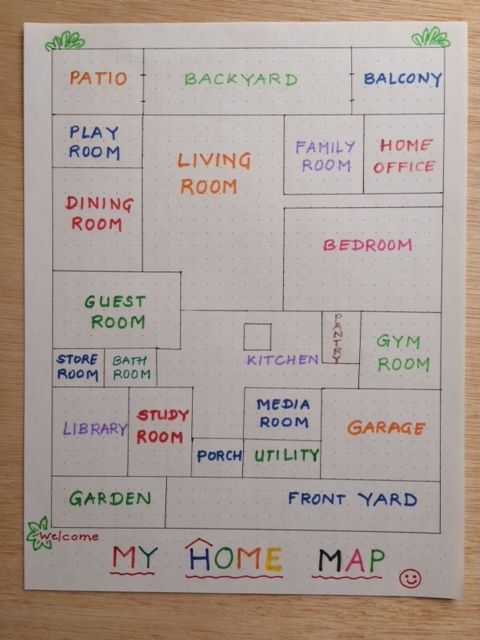 PATIO
BACKYARD
BALCONY
PLAY
ROOM
LIVING
ROOM
FAMILY
ROOM
HOME
OFFICE
DINING
ROOM
BEDROOM
GUEST
ROOM
KITCHEN
PANTRY
GYM
ROOM
STORE
ROOM
BATH
ROOM
LIBRARY
STUDY
ROOM
MEDIA
ROOM
GARAGE
PORCH
UTILITY
GARDEN
FRONT YARD
Welcome
MY HOME MAP